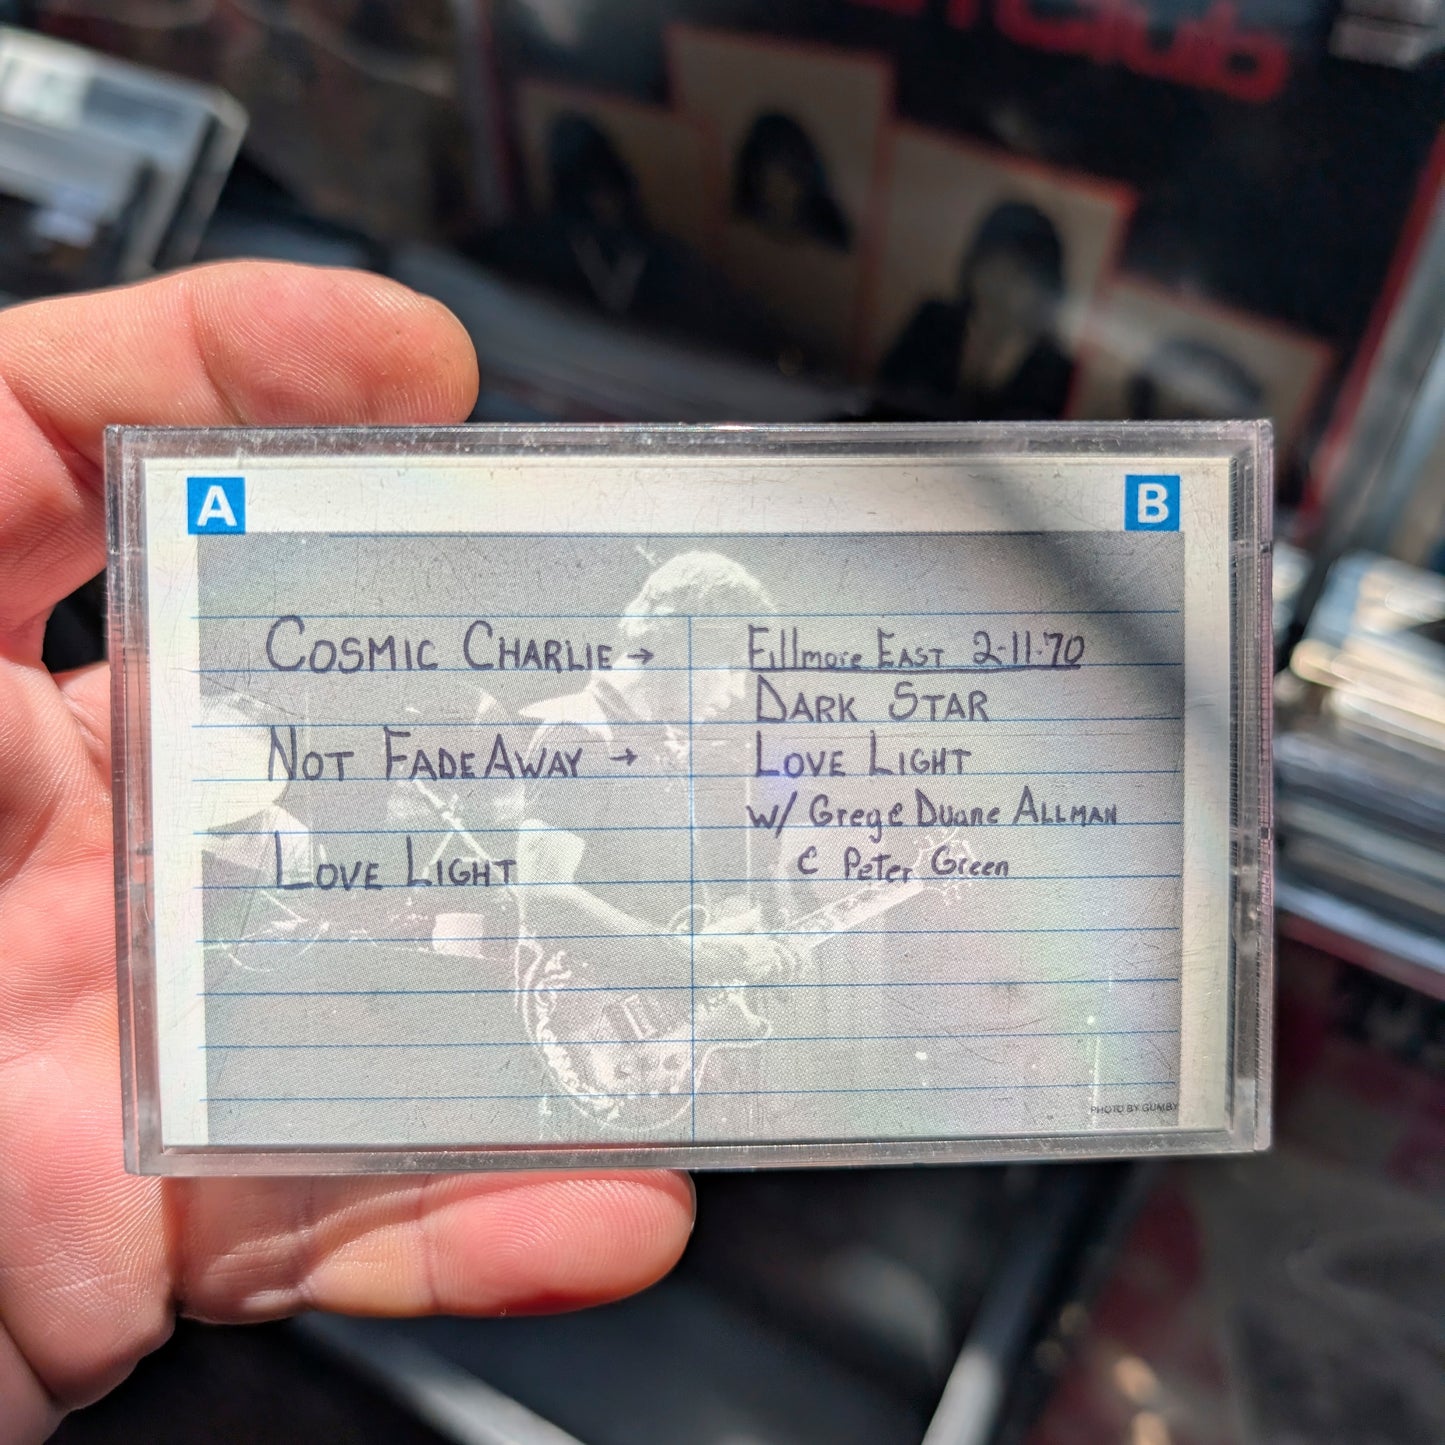 Club
A
B
COSMIC CHARLIE →
NOT FADE AWAY →
LOVE LIGHT
Fillmore EAST 2-11-70
DARK STAR
LOVE LIGHT
w/ Greg & Duane ALLMAN
& Peter Green
PHOTO BY GUMBY